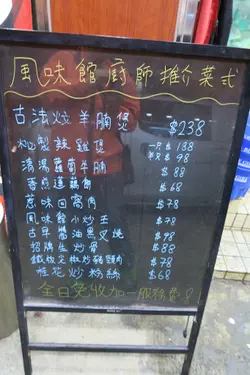 風味館廚師推介菜式
古法炆羊腩煲 $238
秘製辣雞煲 一只$138
半只$98
清湯蘿蔔羊腩 $88
香煎蓮藕餅 $68
意味回窩肉 $78
風味館小炒王 $78
古早醬油黑叉燒 $78
招牌生炒骨 $88
鐵板芝椒炒豬頸肉 $78
桂花炒粉絲 $68
全日免收加一服務費!